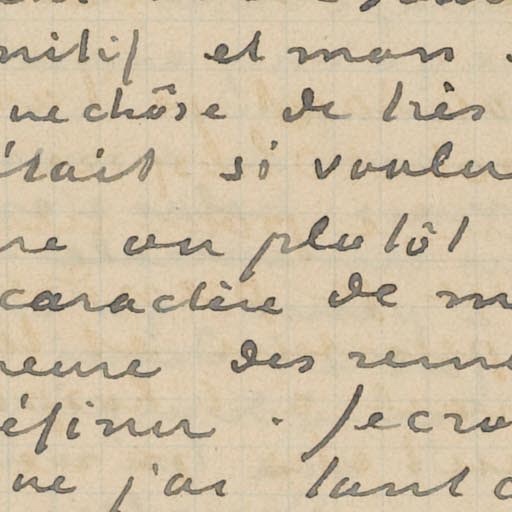 nitif et mon
nechôse de très
était si voulu
re ou plutôt
caractère de m
heure des reme
éfinir. Jecro
ne j'ai tant